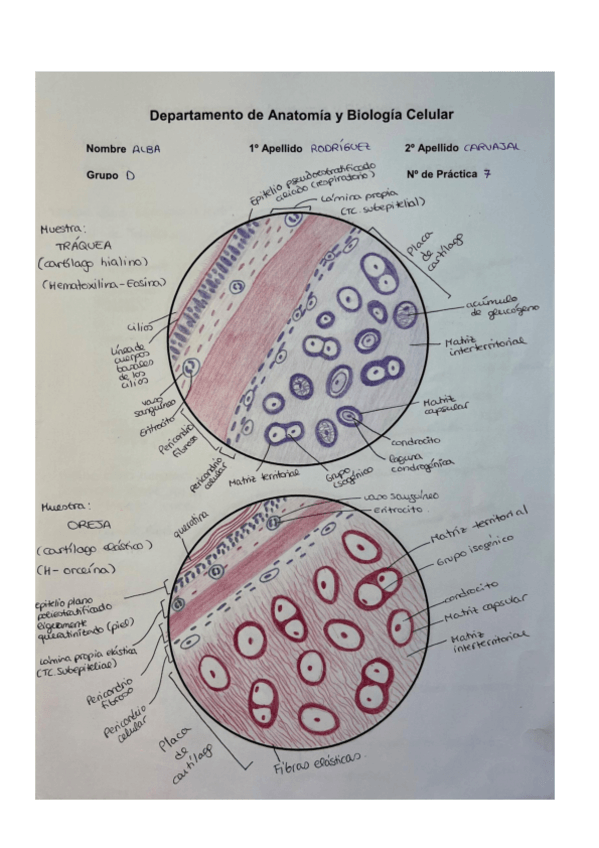 Departamento de Anatomía y Biología Celular
Nombre ALBA 1º Apellido RODRÍGUEZ 2º Apellido CARVAJAL
Grupo D Nº de Práctica 7
Epitelio pseudoestratificado
ciliado (respiratorio)
Lámina propia
(TC. subepitelial)
Muestra:
TRÁQUEA
(cartílago hialino)
(Hematoxilina-Eosina)
Placa
de
cartílago
acúmulo
de glucógeno
Matriz
interterritorial
cilios
Línea de
cuerpos
basales
de los
cilios
vaso
sanguíneo
Eritrocito
Pericondrio
Fibroso
pericondrio
celular
Matriz territorial
Grupo
isogénico
Matriz
capsular
condrocito
laguna
condrogénica
Muestra:
OREJA
(cartílago elástico)
(H-orceína)
queratina
vaso sanguíneo
eritrocito
Matriz territorial
Grupo isogénico
condrocito
Matriz capsular
Matriz
interterritorial
epitelio plano
poliestratificado
ligeramente
queratinizado (piel)
Lámina propia elástica
(TC. Subepitelial)
Pericondrio
fibroso
Pericondrio
celular
Placa
de
cartílago
Fibras elásticas.